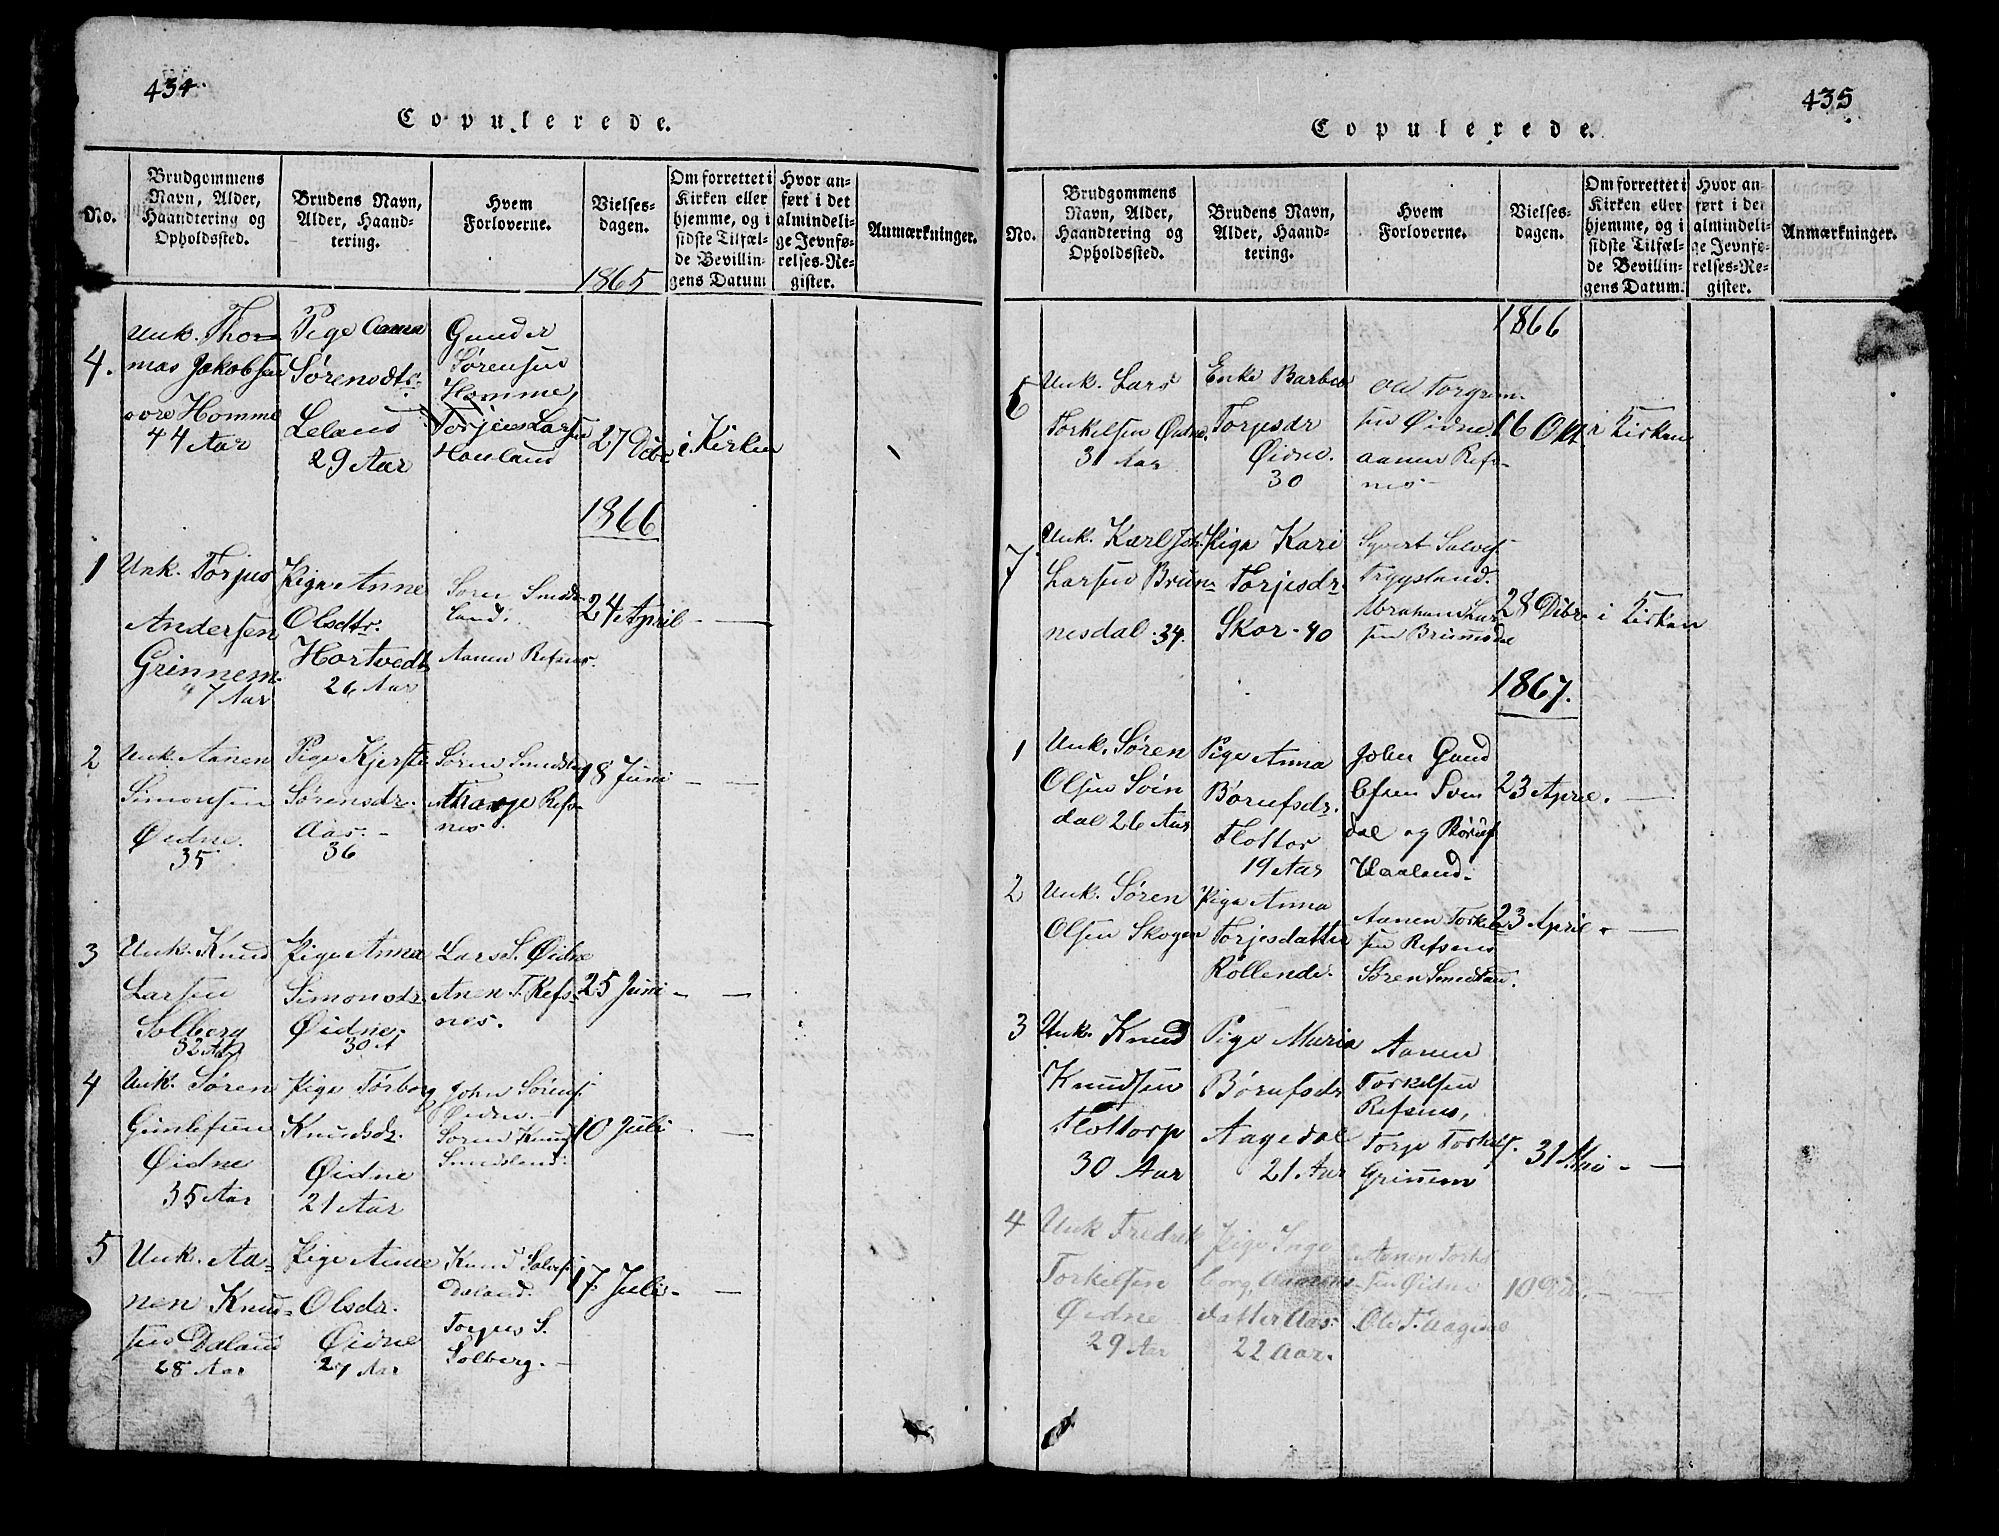 434.
Copulerede.
No.
Brudgommens Navn, Alder, Haandtering og Opholdssted.
Brudens Navn, Alder, Haandtering.
Hvem Forloverne.
Vielsesdagen.
Om forrettet i Kirken eller hjemme, og i sidste Tilfælde Bevillingens Datum
Hvor anført i det almindelige Jevnførelses-Register.
Anmærkninger.
1865
4.
Unk. Tho-
mas Jakobsen
øvre Homme
44 Aar
Pige Aanen
Sørensdtr.
Leland
29 Aar
Gunder
Sørensen
Homme,
Torjus Larsen
Haaland
27 Decbr
i Kirken
1866
1
Unk. Torjus
Andersen
Grinnem.
47 Aar
Pige Anne
Olsdtr.
Hortvedt
26 Aar
Søren Smeds-
land.
Aanen Refsnes.
24 April - —
2
Unk. Aanen
Simonsen
Øidne.
35
Pige Kjersti
Sørensdr.
Aas. -
36
Søren Smedsland
Refs-
nes.
18 Juni - —
3
Unk. Knud
Larsen
Solberg
32 Aar
Pige Anna
Simonsdr.
Øidne.
30 A
Lars S. Øidne
Anen T. Refs-
nes.
25 Juni - —
4
Unk. Søren
Gunlefsen
Øidne
35 Aar
Pige Torborg
Knudsdr.
Øidne
21 Aar
John Sørens.
Øidne. -
Søren Knuds
Smedsland.
10 Juli - —
5
Unk. Aa-
nen Knud-
sen Daland
28 Aar
Pige Anne
Olsdr.
Øidne
27 Aar
Knud Salves
Daland.
Torjus S.
Solberg. -
17 Juli - —
435
Copulerede.
No.
Brudgommens Navn, Alder, Haandtering og Opholdssted.
Brudens Navn, Alder, Haandtering.
Hvem Forloverne.
Vielsesdagen.
Om forrettet i Kirken eller hjemme, og i sidste Tilfælde Bevillingens Datum.
Hvor anført i det almindelige Jevnførelses-Register.
Anmærkninger.
1866
6
Unk. Lars
Torkelsen Øidne.
31 Aar
Enke Barbro
Torjesdr
Øidne.
30
Ole Torgrim-
sen Øidne.
Aanen Refs-
nes -
16 Okt. i Kirken
7
Unk. Karl Joh.
Larsen Brun-
nesdal. 34.
Pige Kari
Torjesdr.
Skor - 40
Syvert Salves.
Trygsland.
Abraham Lar-
sen Brunnsdal
28 Decbr. i Kirken
1867.
1
Unk. Søren
Olsen Svin
dal 26 Aar
Pige Anna
Børufsdr.
Flottor
19 Aar
John Gund
lefsen Svin
dal og Børuf
Haaland.
23 April. —
2
Unk. Søren
Olsen Skogen
Pige Anna
Torjesdatter
Røllende.
Aanen Torkel-
sen Refsenes
Søren Smedsland.
23 April - —
3
Unk. Knud
Knudsen
Flottorp
30 Aar
Pige Maria
Børufsdr
Aagedal
21 Aar
Aanen
Torkelsen
Refsenes,
Torje Torkels.
Grinnem
31 Mai - —
4
Unk Fredrik
Torkelsen
Øidne
29 Aar
Pige Inge
borg Aanens-
datter Aas.
22 Aar.
Aanen Torkel
sen Øidne
Ole T.
10 Oct. - —